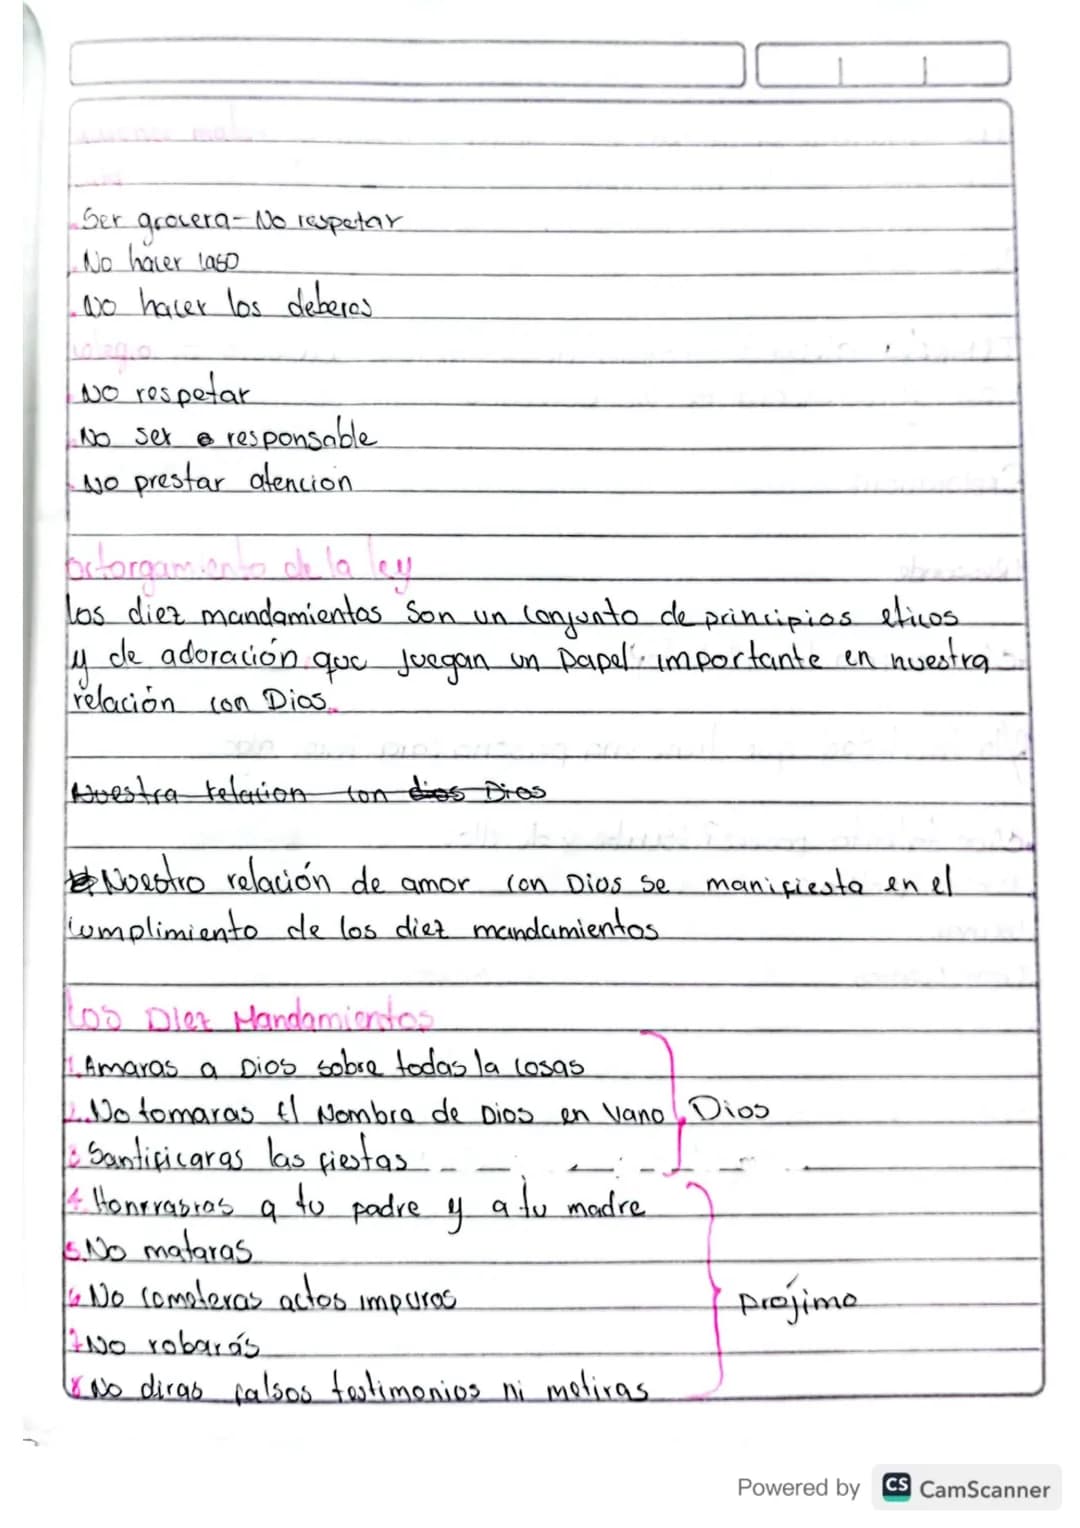 Ser grocera - No respetar
No hacer caso
No hacer los deberes
colegio
No respetar
No ser responsable
No prestar atencion
octorgamiento de la ley
los diez mandamientos Son un conjunto de principios eticos
y de adoración que Juegan un papel importante en nuestra
relación con Dios.
Nuestra relacion con dios Dios
Nuestro relación de amor con Dios Se manifiesta en el
cumplimiento de los diez mandamientos
Los Diez Mandamientos
1. Amaras a Dios sobre todas la cosas
2. No tomaras El Nombre de Dios en Vano Dios
3 Santificaras las fiestas
4. Honrrabras a tu padre y a tu madre
5. No mataras
6 No cometeras actos impuros prójimo
7 No robarás
8 No diras falsos testimonios ni metiras
Powered by CS CamScanner